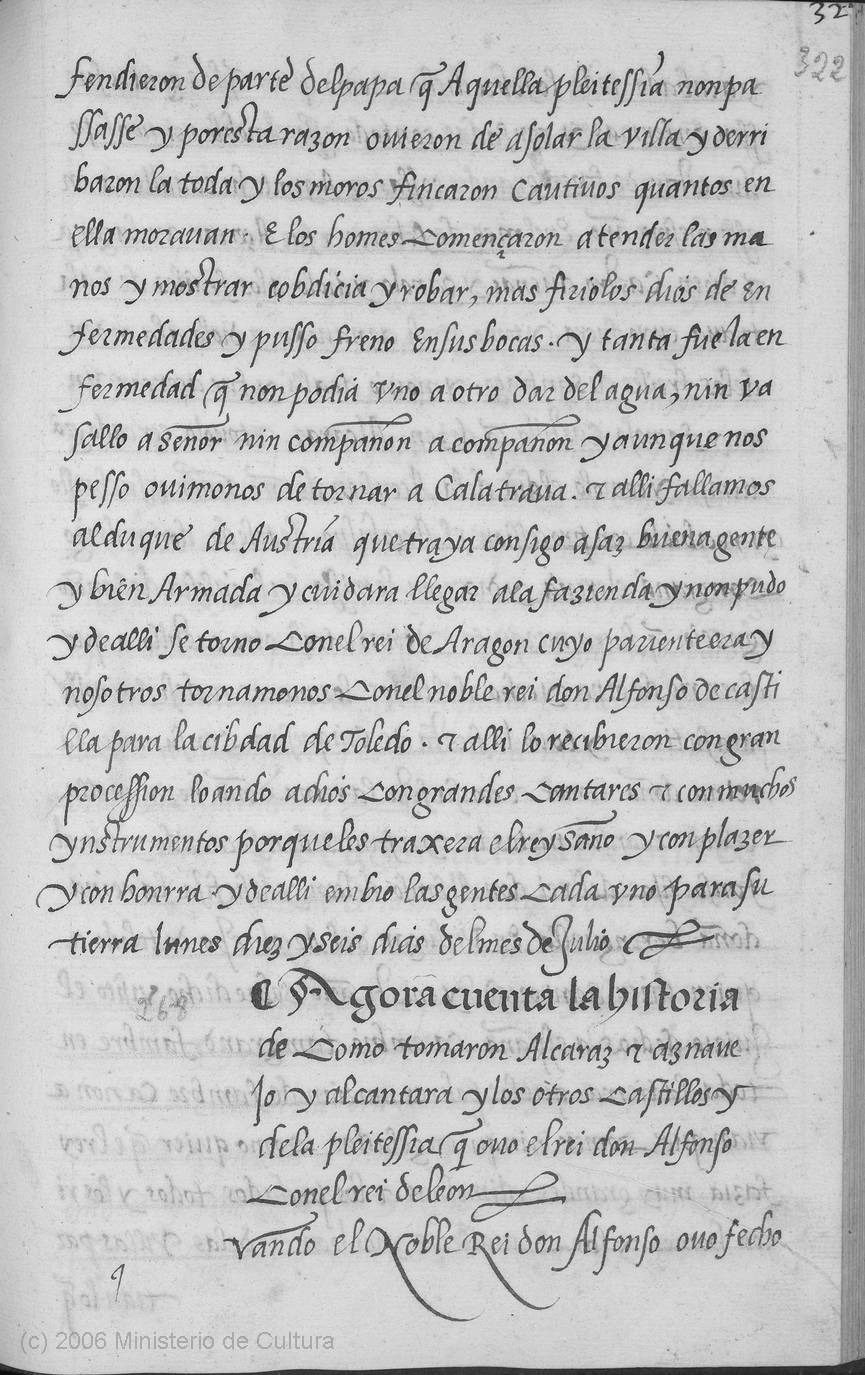 32
322
fendieron de parte del papa q̃ Aquella pleitessia non pa
ssasse y por esta razon ovieron de asolar la villa y derri
baron la toda y los moros fincaron Cautivos quantos en
ella moravan. E los homes Començaron a tender las ma
nos y mostrar cobdicia y robar, mas firiolos dios de en
fermedades y pusso freno En sus bocas. y tanta fue la en
fermedad q̃ non podia vno a otro dar del agua, nin va
sallo a señor nin compañon a compañon y aunque nos
pesso ovimonos de tornar a Calatraua. & alli fallamos
al duque de Austria que traya consigo asaz buena gente
y bien Armada y cuidara llegar a la fazienda y non pudo
y de alli se torno Con el rei de Aragon cuyo pariente era y
nosotros tornamonos Con el noble rei don Alfonso de casti
lla para la cibdad de Toledo. & alli lo recibieron con gran
procession loando a dios Con grandes Cantares & con muchos
ynstrumentos por que les traxera el rey sano y con plazer
y con honrra. y de alli embio las gentes Cada vno para su
tierra lunes diez y seis dias del mes de Julio
268
Agora cuenta la historia
de Como tomaron Alcaraz & aznave
Jo y alcantara y los otros Castillos y
de la pleitessia q̃ ovo el rei don Alfonso
Con el rei de leon
vando el Noble Rei don Alfonso ovo fecho
q
(c) 2006 Ministerio de Cultura